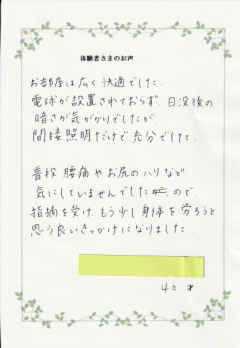 体験者さまのお声
お部屋は広く快適でした。
電球が設置されておらず、日没後の
暗さが気がかりでしたが、
間接照明だけで充分でした。
普段 腰痛やお尻のハリなど
気にしていませんでしたので、
指摘を受け、もう少し身体を労ろうと
思う良いきっかけになりました。
40才